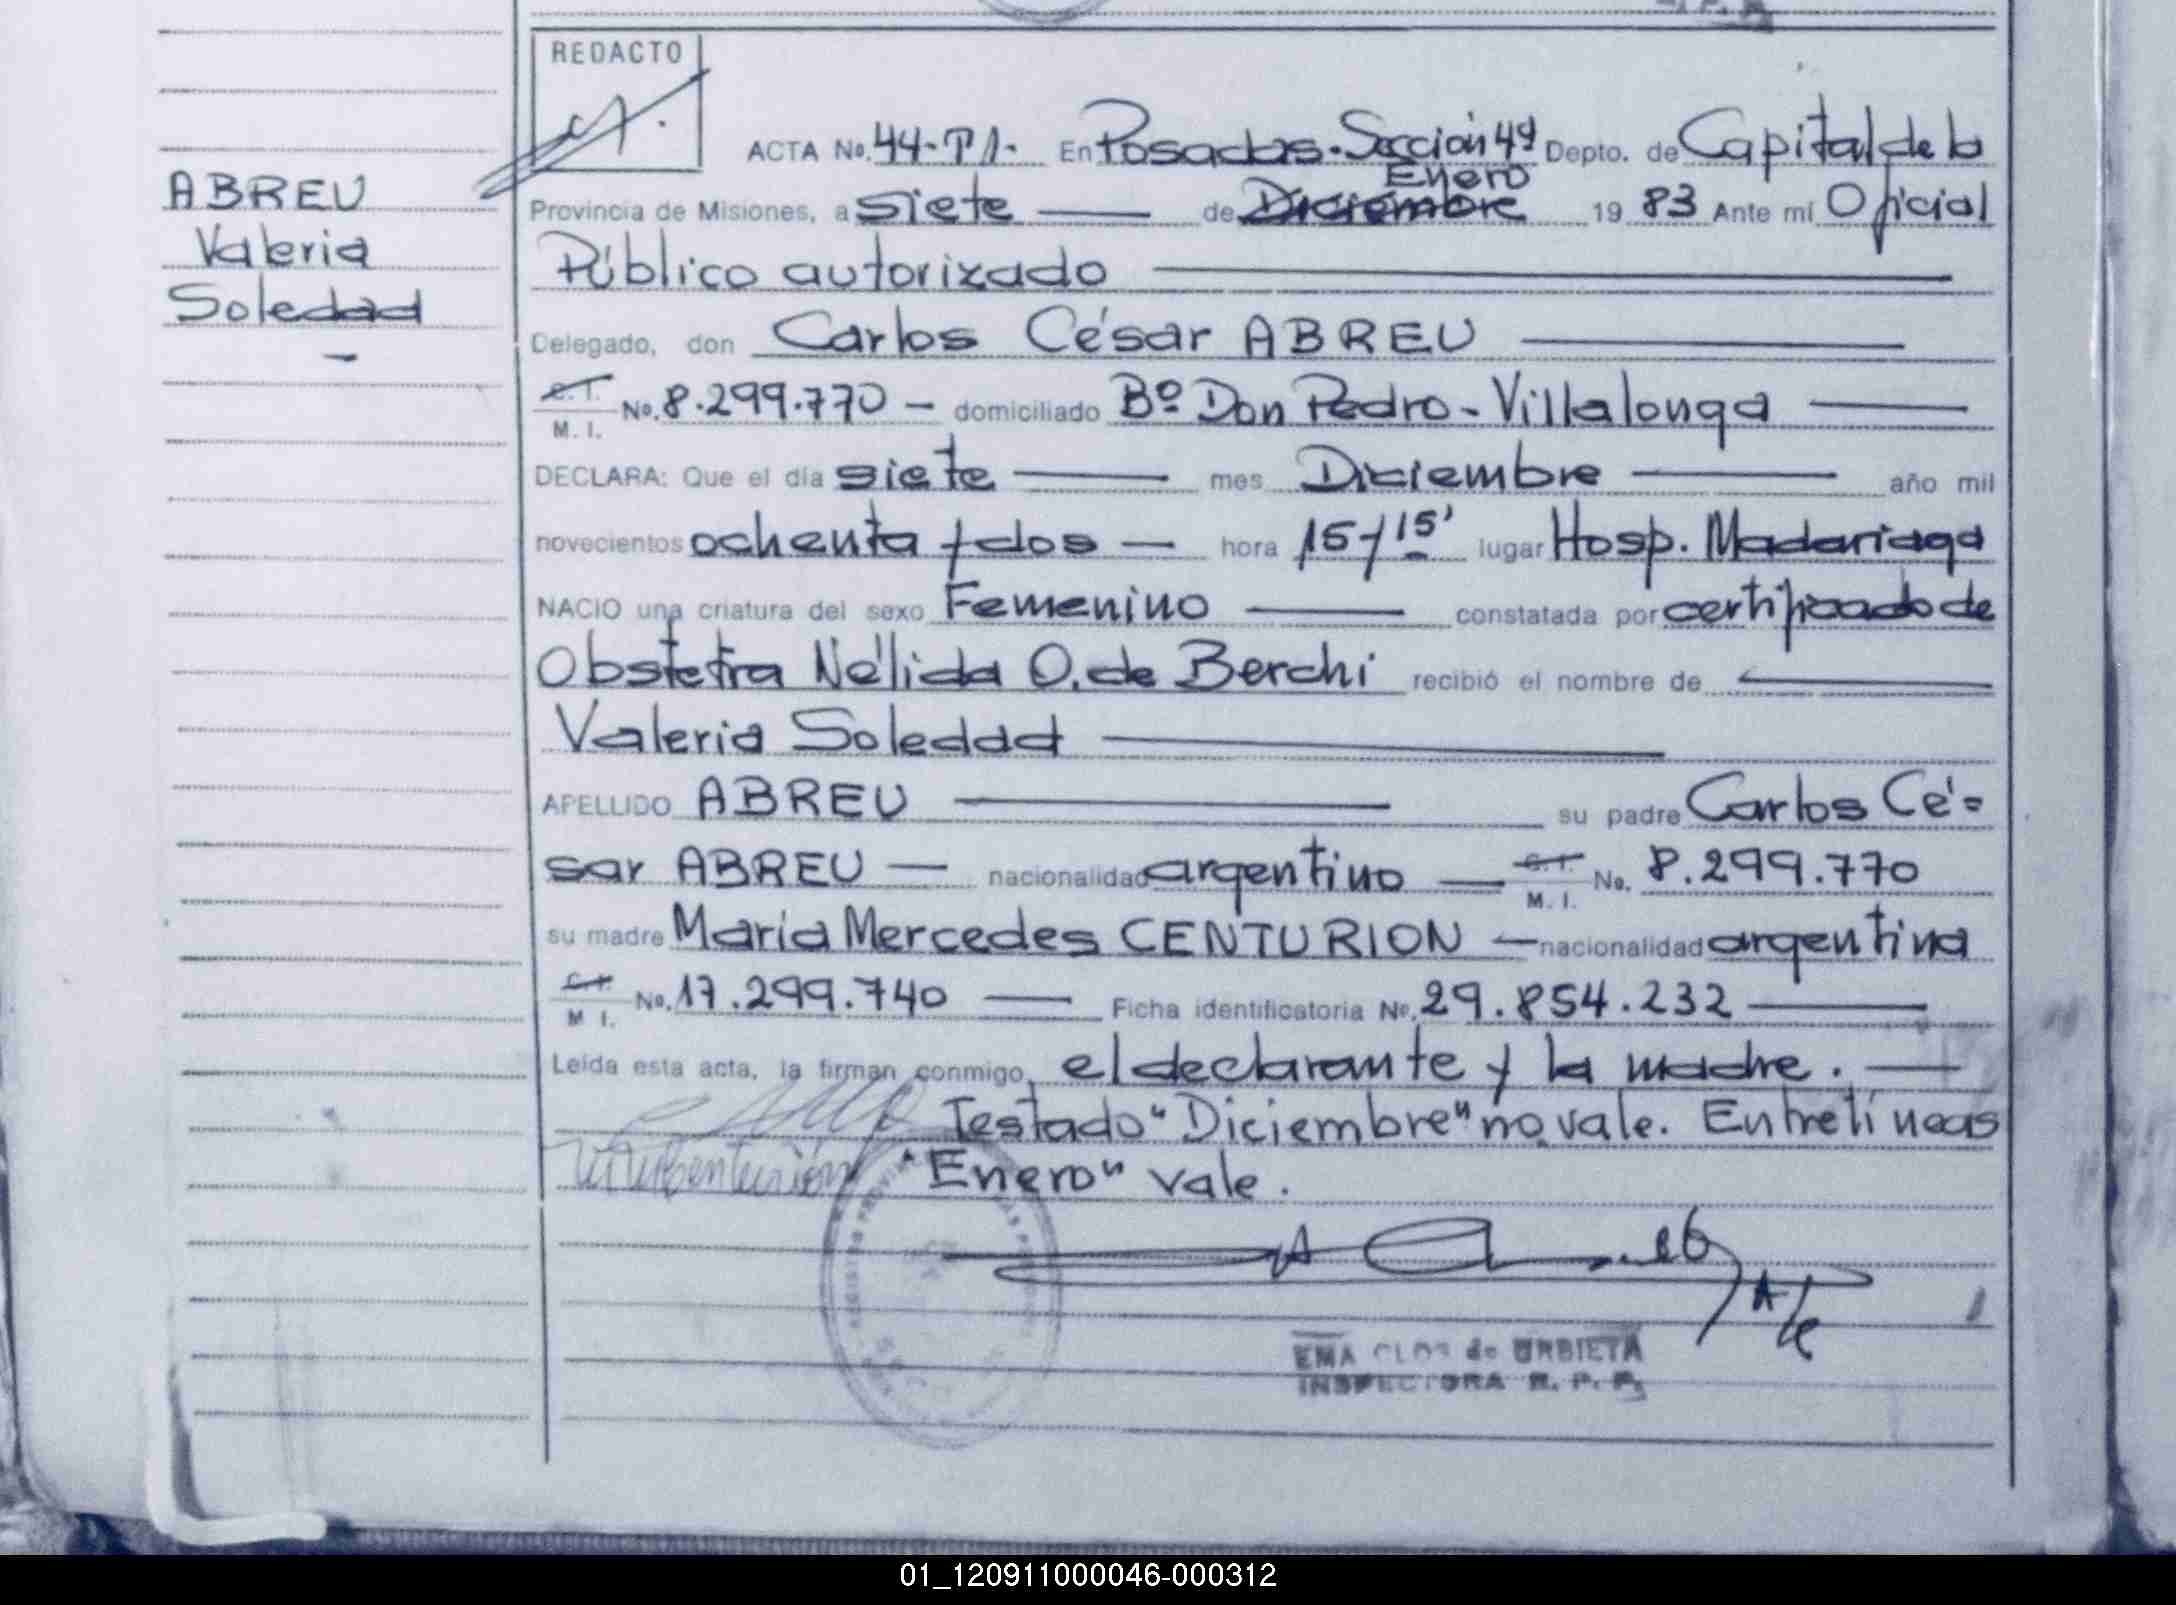 REDACTO
ACTA No. 44-T1. En Posadas-Sección 4ª Depto. de Capital de la
ABREU
Valeria
Soledad
Enero
Provincia de Misiones, a siete de Diciembre 19 83 Ante mí Oficial
Público autorizado
Delegado, don Carlos César ABREU
C.I. M. I. No. 8.299.770 - domiciliado Bº Don Pedro-Villalonga
DECLARA: Que el día siete mes Diciembre año mil
novecientos ochenta y dos hora 15 y 15' lugar Hosp. Madariaga
NACIO una criatura del sexo Femenino constatada por certificado de
Obstetra Nélida O. de Berchi recibió el nombre de
Valeria Soledad
APELLIDO ABREU su padre Carlos Cé=
sar ABREU nacionalidad argentino C.I. M. I. No. 8.299.770
su madre María Mercedes CENTURION nacionalidad argentina
C.I. M I. No. 17.299.740 Ficha identificatoria No. 29.854.232
Leída esta acta, la firman conmigo, el declarante y la madre.
Testado "Diciembre" no vale. Entrelíneas
"Enero" vale.
EMA CLOS de URBIETA
INSPECTORA R. P. P.
01_120911000046-000312